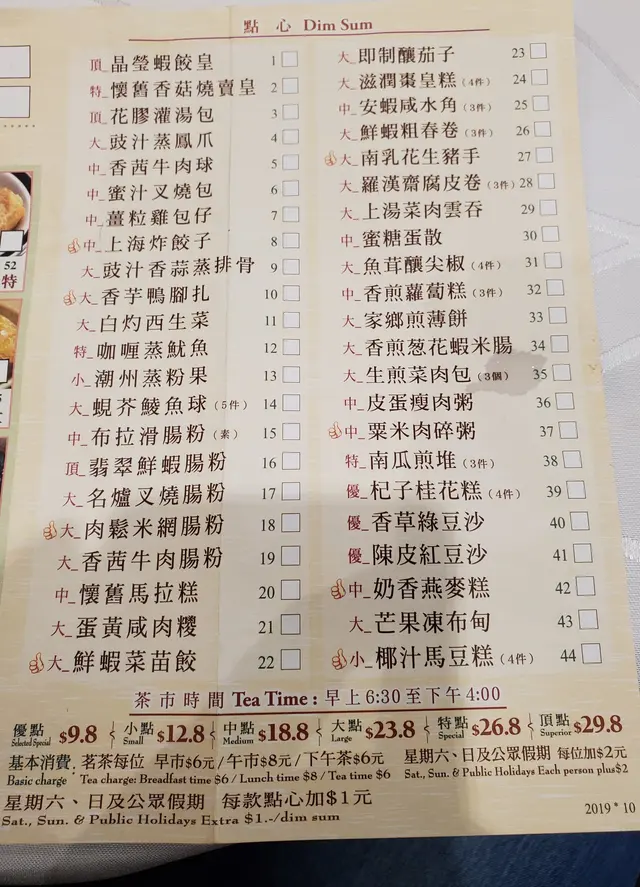 點心 Dim Sum
頂_晶瑩蝦餃皇 1
特_懷舊香菇燒賣皇 2
頂_花膠灌湯包 3
大_豉汁蒸鳳爪 4
中_香茜牛肉球 5
中_蜜汁叉燒包 6
中_薑粒雞包仔 7
中_上海炸餃子 8
大_豉汁香蒜蒸排骨 9
大_香芋鴨腳扎 10
大_白灼西生菜 11
特_咖喱蒸魷魚 12
小_潮州蒸粉果 13
大_蜆芥鯪魚球(5件) 14
中_布拉滑腸粉(素) 15
頂_翡翠鮮蝦腸粉 16
大_名爐叉燒腸粉 17
大_肉鬆米網腸粉 18
大_香茜牛肉腸粉 19
中_懷舊馬拉糕 20
大_蛋黃咸肉糭 21
大_鮮蝦菜苗餃 22
大_即制釀茄子 23
大_滋潤棗皇糕(4件) 24
中_安蝦咸水角(3件) 25
大_鮮蝦粗春卷(3件) 26
大_南乳花生豬手 27
大_羅漢齋腐皮卷(3件) 28
大_上湯菜肉雲吞 29
中_蜜糖蛋散 30
大_魚茸釀尖椒(4件) 31
中_香煎蘿蔔糕(3件) 32
大_家鄉煎薄餅 33
大_香煎葱花蝦米腸 34
大_生煎菜肉包(3個) 35
中_皮蛋瘦肉粥 36
中_粟米肉碎粥 37
特_南瓜煎堆(3件) 38
優_杞子桂花糕(4件) 39
優_香草綠豆沙 40
優_陳皮紅豆沙 41
中_奶香燕麥糕 42
大_芒果凍布甸 43
小_椰汁馬豆糕(4件) 44
52
特
茶市時間 Tea Time : 早上6:30至下午4:00
優點 Selected Special $9.8 小點 Small $12.8 中點 Medium $18.8 大點 Large $23.8 特點 Special $26.8 頂點 Superior $29.8
基本消費 : 茗茶每位 早市$6元/午市$8元/下午茶$6元 星期六、日及公眾假期 每位加$2元
Basic charge : Tea charge: Breakfast time $6 / Lunch time $8 / Tea time $6 Sat., Sun. & Public Holidays Each person plus$2
星期六、日及公眾假期 每款點心加$1元
Sat., Sun. & Public Holidays Extra $1.-/dim sum
2019 * 10